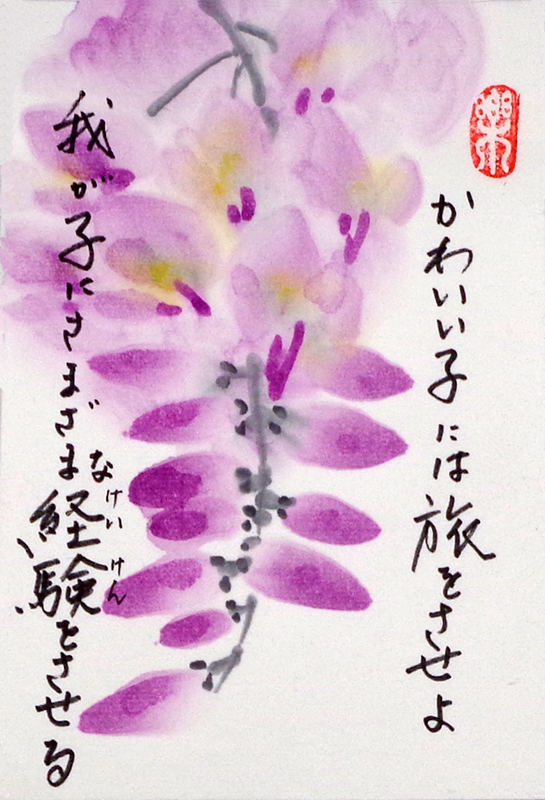 かわいい子には旅をさせよ
我が子にさまざまな経験をさせる
けいけん